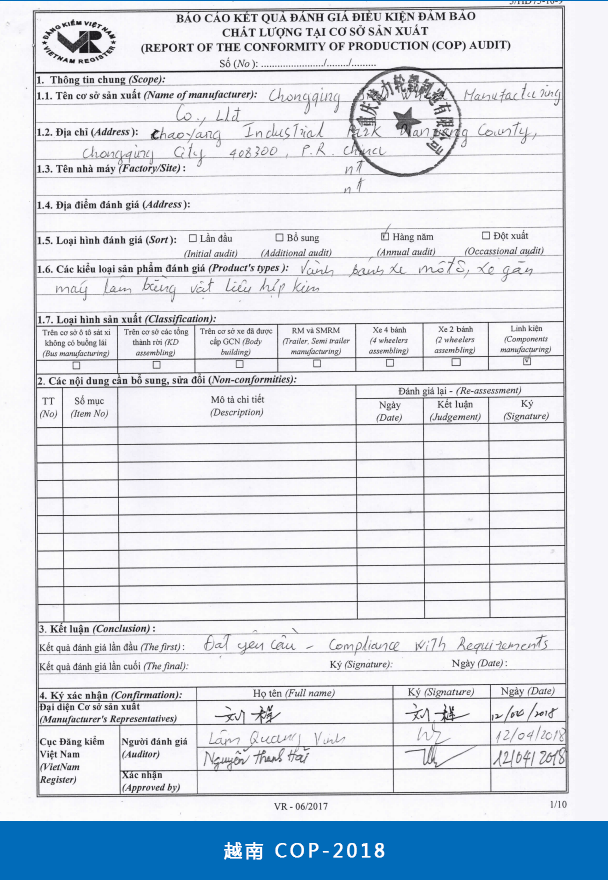 ĐĂNG KIỂM VIỆT NAM
VR
VIETNAM REGISTER
BÁO CÁO KẾT QUẢ ĐÁNH GIÁ ĐIỀU KIỆN ĐẢM BẢO
CHẤT LƯỢNG TẠI CƠ SỞ SẢN XUẤT
(REPORT OF THE CONFORMITY OF PRODUCTION (COP) AUDIT)
Số (No ): ....................../......./........
1. Thông tin chung (Scope):
1.1. Tên cơ sở sản xuất (Name of manufacturer): Chongqing Manufacturing
Co., Ltd
1.2. Địa chỉ (Address) : Chaoyang Industrial Park County,
Chongqing City 408300, P.R. China
1.3. Tên nhà máy (Factory/Site) : nt
nt
1.4. Địa điểm đánh giá (Address):
1.5. Loại hình đánh giá (Sort): Lần đầu Bổ sung Hàng năm Đột xuất
(Initial audit) (Additional audit) (Annual audit) (Occassional audit)
1.6. Các kiểu loại sản phẩm đánh giá (Product's types): Vành bánh xe môtô, xe gắn
máy làm bằng vật liệu hợp kim
1.7. Loại hình sản xuất (Classification):
Trên cơ sở ô tô sát xi không có buồng lái (Bus manufacturing)
Trên cơ sở các tổng thành rời (KD assembling)
Trên cơ sở xe đã được cấp GCN (Body building)
RM và SMRM (Trailer, Semi trailer manufacturing)
Xe 4 bánh (4 wheelers assembling)
Xe 2 bánh (2 wheelers assembling)
Linh kiện (Components manufacturing)
2. Các nội dung cần bổ sung, sửa đổi (Non-conformities):
TT (No) Số mục (Item No) Mô tả chi tiết (Description) Đánh giá lại - (Re-assessment)
Ngày (Date) Kết luận (Judgement) Ký (Signature)
3. Kết luận (Conclusion) :
Kết quả đánh giá lần đầu (The first) : Đạt yêu cầu - Compliance with Requirements
Kết quả đánh giá lần cuối (The final): Ký (Signature): Ngày (Date) :
4. Ký xác nhận (Confirmation): Họ tên (Full name) Ký (Signature) Ngày (Date)
Đại diện Cơ sở sản xuất (Manufacturer's Representatives) 12/04/2018
Cục Đăng kiểm Việt Nam (VietNam Register) Người đánh giá (Auditor) Lâm Quang Vinh 12/04/2018
Nguyễn Thanh Hải 12/04/2018
Xác nhận (Approved by)
VR - 06/2017 1/10
越南 COP-2018